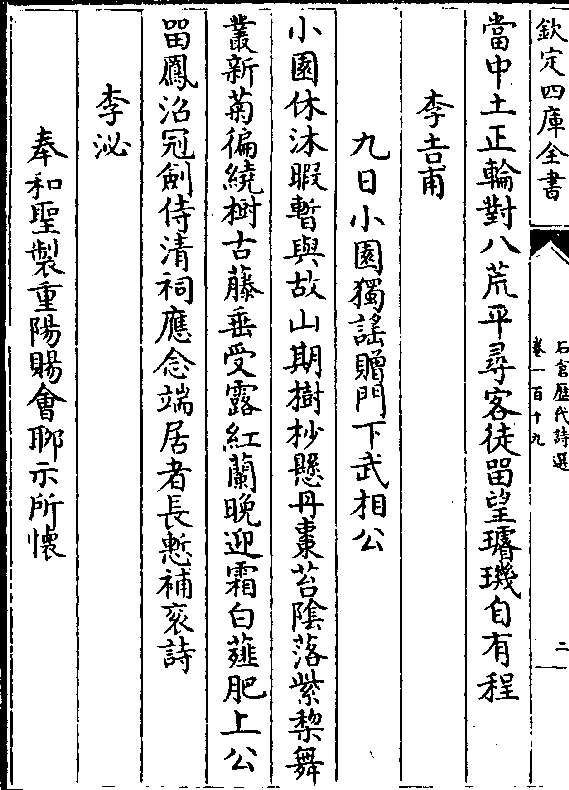 欽定四庫全書
石倉歷代詩選
卷一百十九
二
當中土正輪對八荒平尋客徒留望璿璣自有程
李吉甫
九日小園獨謠贈門下武相公
小園休沐暇暫與故山期樹杪懸丹棗苔陰落紫棃舞
叢新菊徧繞樹古藤垂受露紅蘭晚迎霜白薤肥上公
留鳳沼冠劍侍清祠應念端居者長慙補衮詩
李泌
奉和聖製重陽賜會聊示所懷